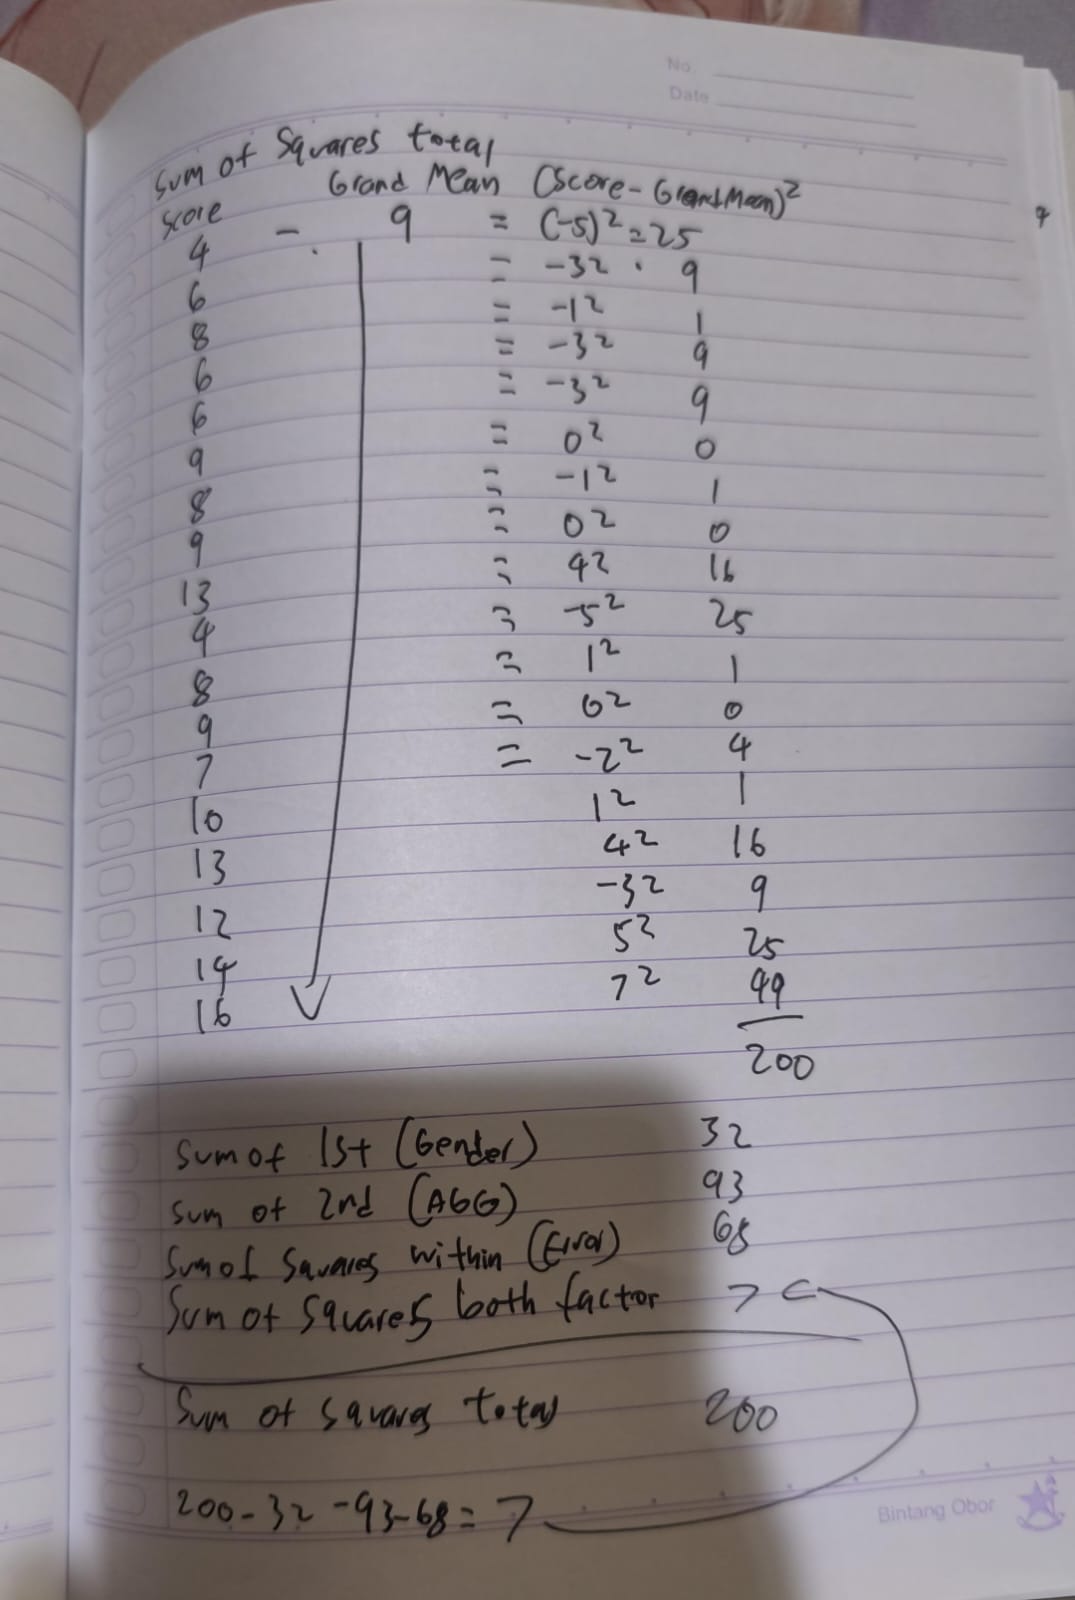 No.
Date
Sum of Squares total
Score Grand Mean (Score - GrandMean)²
4 - 9 = (-5)² = 25
6 = -3² 9
8 = -1² 1
6 = -3² 9
6 = -3² 9
9 = 0² 0
8 = -1² 1
9 = 0² 0
13 = 4² 16
4 = -5² 25
8 = 1² 1
9 = 0² 0
7 = -2² 4
10 1² 1
13 4² 16
12 -3² 9
14 5² 25
16 7² 49
200
Sum of 1st (Gender) 32
Sum of 2nd (AGG) 93
Sum of Squares within (Error) 68
Sum of Squares both factor 7
Sum of squares total 200
200 - 32 - 93 - 68 = 7
Bintang Obor